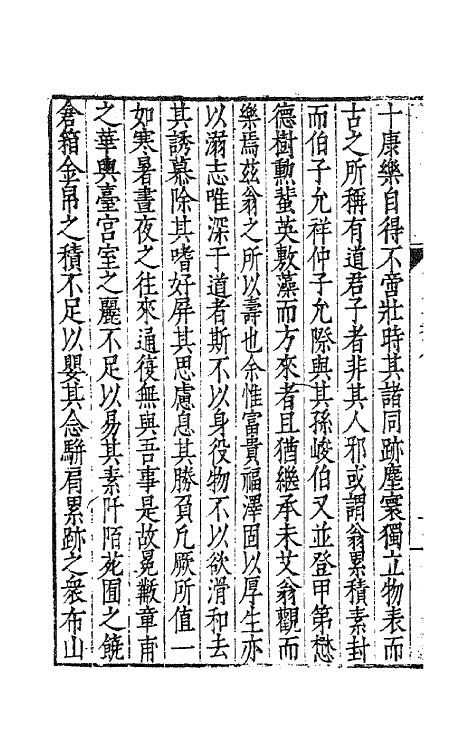 十康樂自得不啻壯時其諸同跡塵寰獨立物表而
古之所稱有道君子者非其人邪或謂翁累積素封
而伯子允祥仲子允際與其孫峻伯又並登甲第懋
德樹勲蜚英敷藻而方來者且猶繼承未艾翁觀而
樂焉茲翁之所以壽也余惟富貴福澤固以厚生亦
以溺志唯深于道者斯不以身役物不以欲滑和去
其誘慕除其嗜好屏其思慮息其勝負凡厥所值一
如寒暑晝夜之往來通復無與吾事是故冕黻章甫
之華輿臺宮室之麗不足以易其素阡陌苑囿之饒
倉箱金帛之積不足以嬰其念駢肩累跡之衆布山